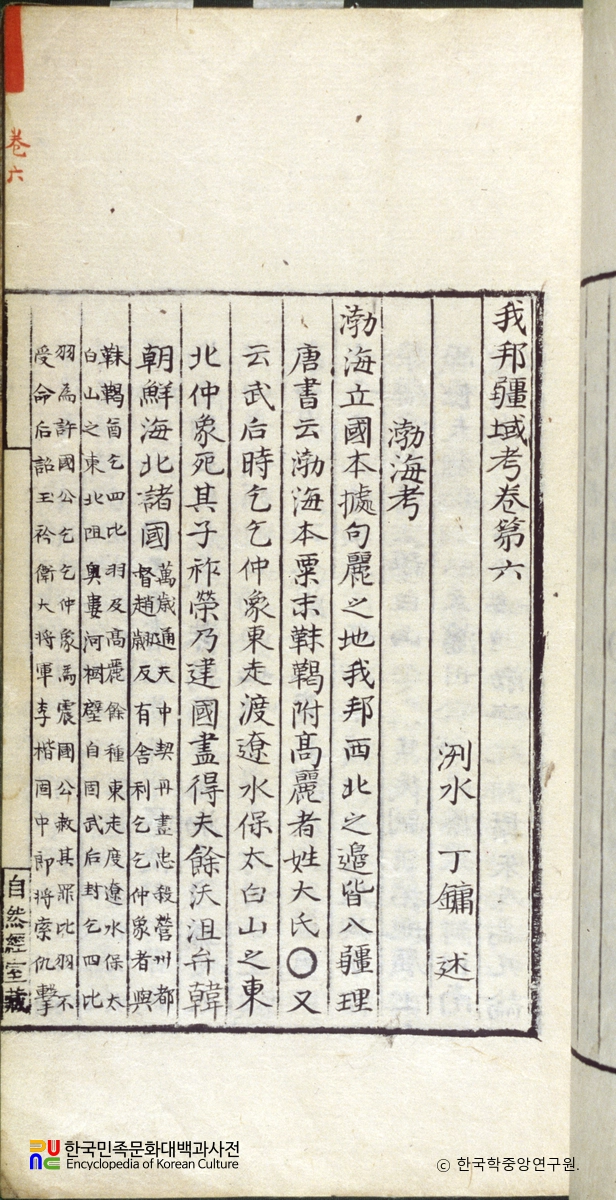 我邦疆域考卷第六
洌水 丁鏞 述
渤海考
渤海立國本據句麗之地我邦西北之邉皆入疆理
唐書云渤海本粟末靺鞨附髙麗者姓大氏〇又
云武后時乞乞仲象東走渡遼水保太白山之東
北仲象死其子祚榮乃建國盡得夫餘沃沮弁韓
朝鮮海北諸國萬歲通天中契丹盡忠殺營州都
督趙翽反有舍利乞乞仲象者與
靺鞨酋乞四比羽及髙麗餘種東走度遼水保太
白山之東北阻奧婁河樹壁自固武后封乞四比
羽爲許國公乞乞仲象爲震國公赦其罪比羽不
受命后詔玉衿衞大將軍李楷固中郎將索仇擊
自然經室藏
卷六
한국민족문화대백과사전
Encyclopedia of Korean Culture
© 한국학중앙연구원.